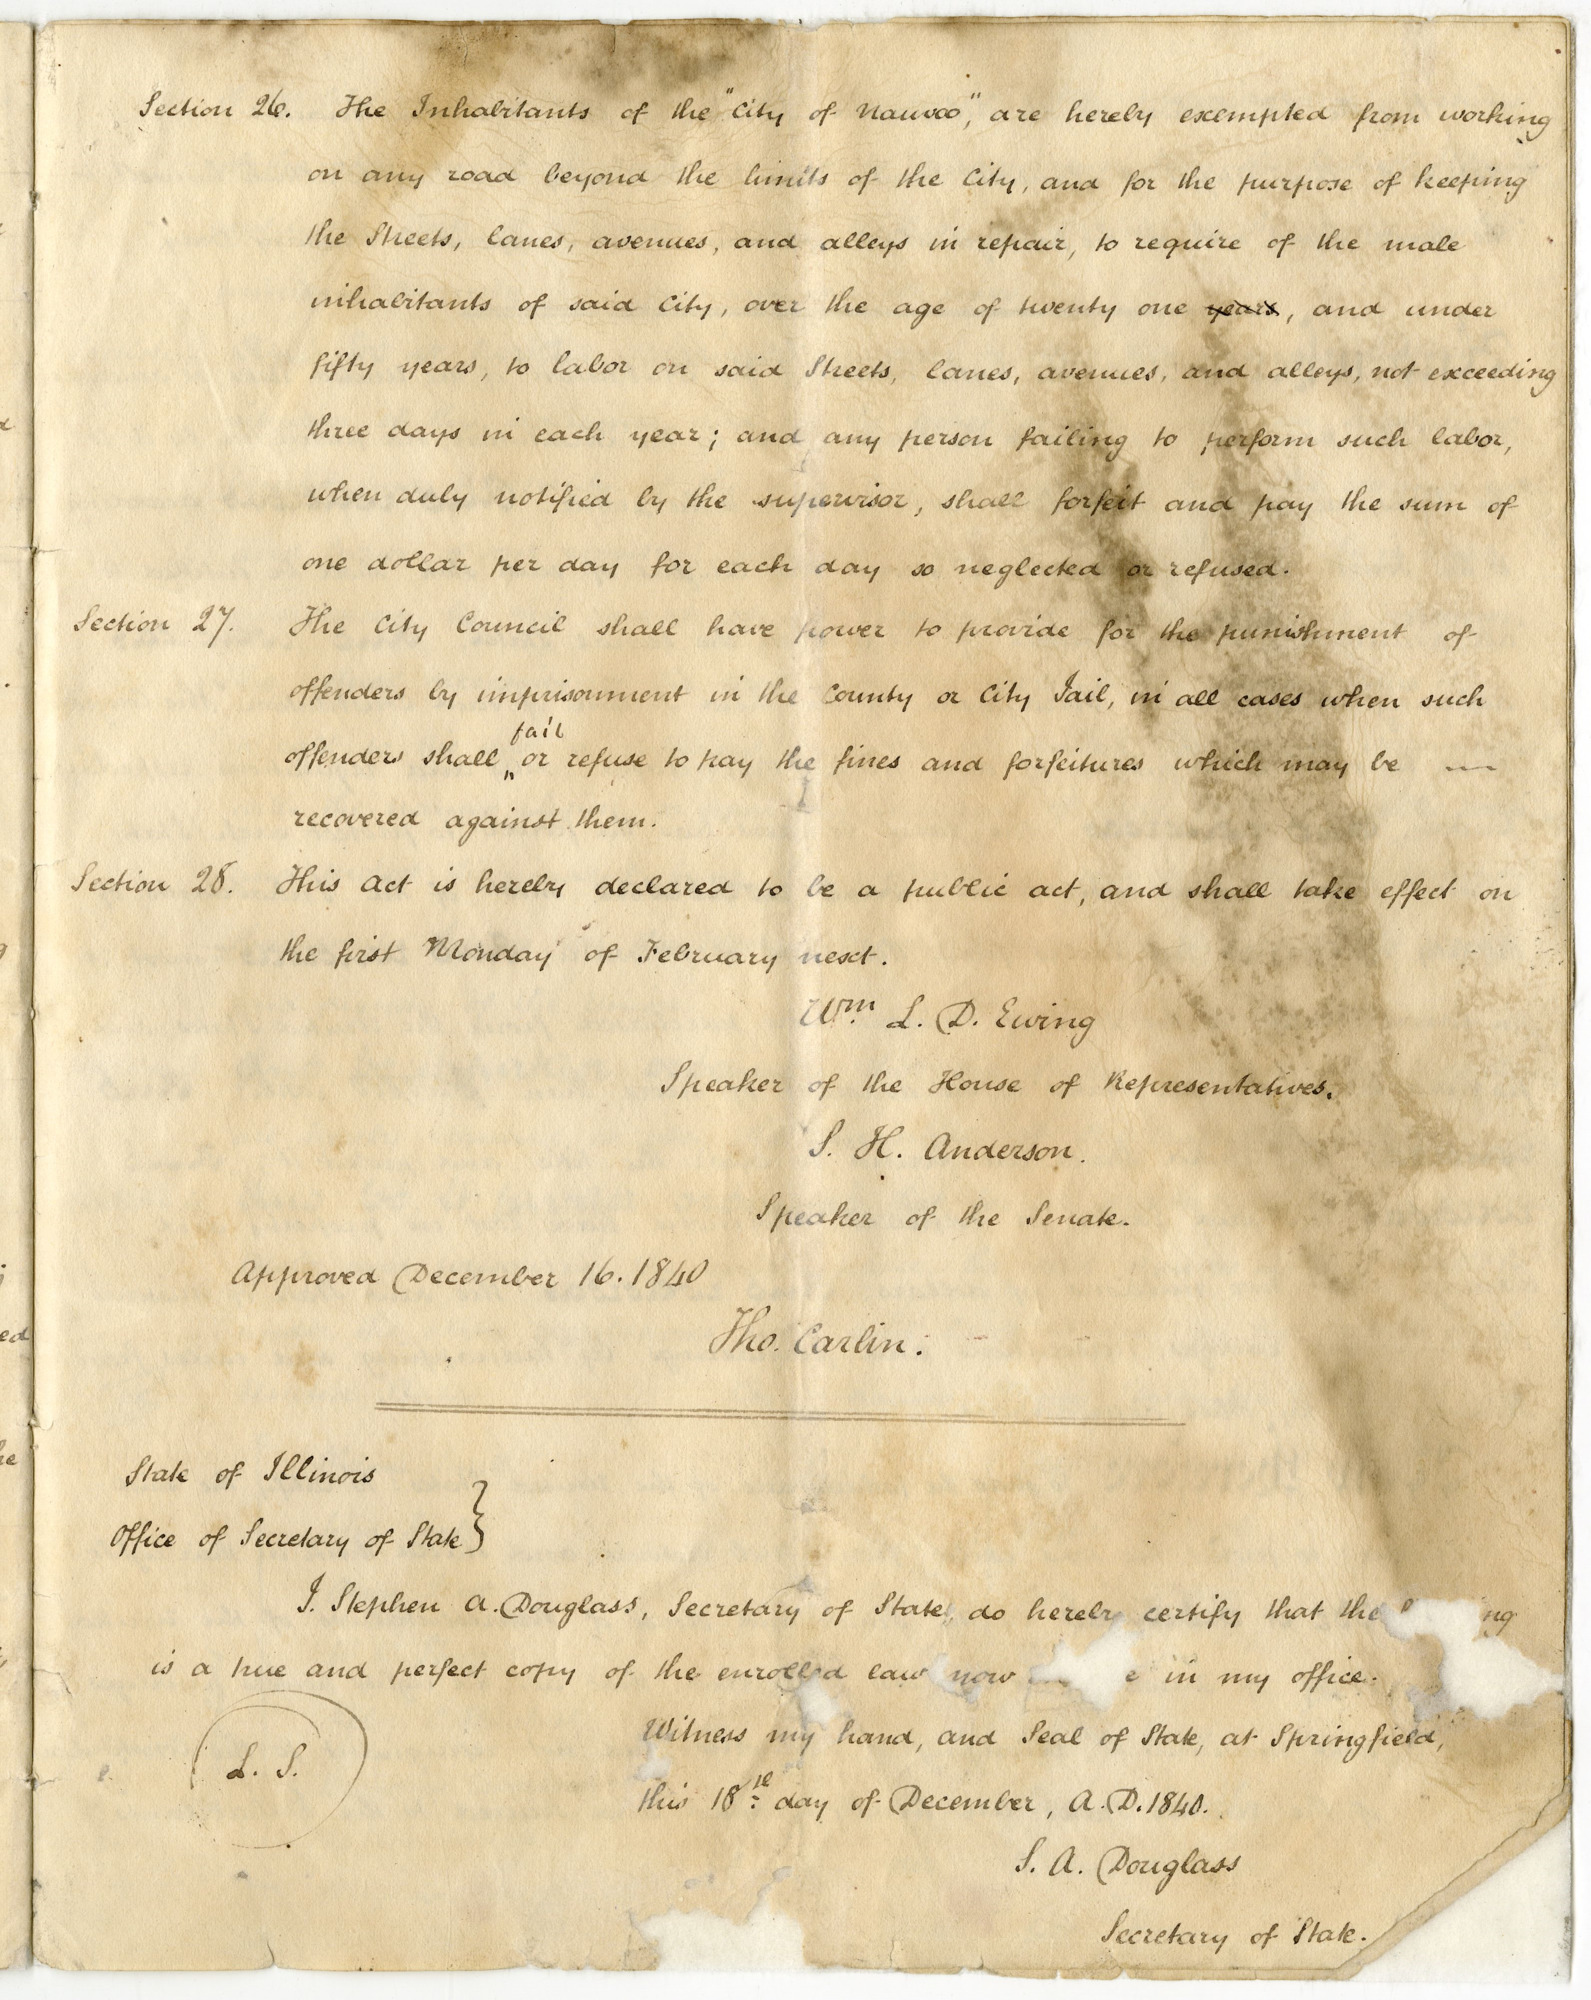 Section 26. The Inhabitants of the "City of Nauvoo", are hereby exempted from working
on any road beyond the limits of the City, and for the purpose of keeping
the Streets, lanes, avenues, and alleys in repair, to require of the male
inhabitants of said City, over the age of twenty one years, and under
fifty years, to labor on said Streets, lanes, avenues, and alleys, not exceeding
three days in each year; and any person failing to perform such labor,
when duly notified by the supervisor, shall forfeit and pay the sum of
one dollar per day for each day so neglected or refused.
Section 27. The City Council shall have power to provide for the punishment of
offenders by imprisonment in the County or City Jail, in all cases when such
fail
offenders shall or refuse to pay the fines and forfeitures which may be
recovered against them.
Section 28. This Act is hereby declared to be a public act, and shall take effect on
the first Monday of February next.
Wm. L. D. Ewing
Speaker of the House of Representatives.
S. H. Anderson.
Speaker of the Senate.
Approved December 16. 1840
Tho. Carlin.
State of Illinois
Office of Secretary of State }
I. Stephen A. Douglass, Secretary of State, do hereby certify that the
is a true and perfect copy of the enrolled law now in my office.
Witness my hand, and Seal of State, at Springfield,
L. S.
this 18th day of December, A. D. 1840.
S. A. Douglass
Secretary of State.